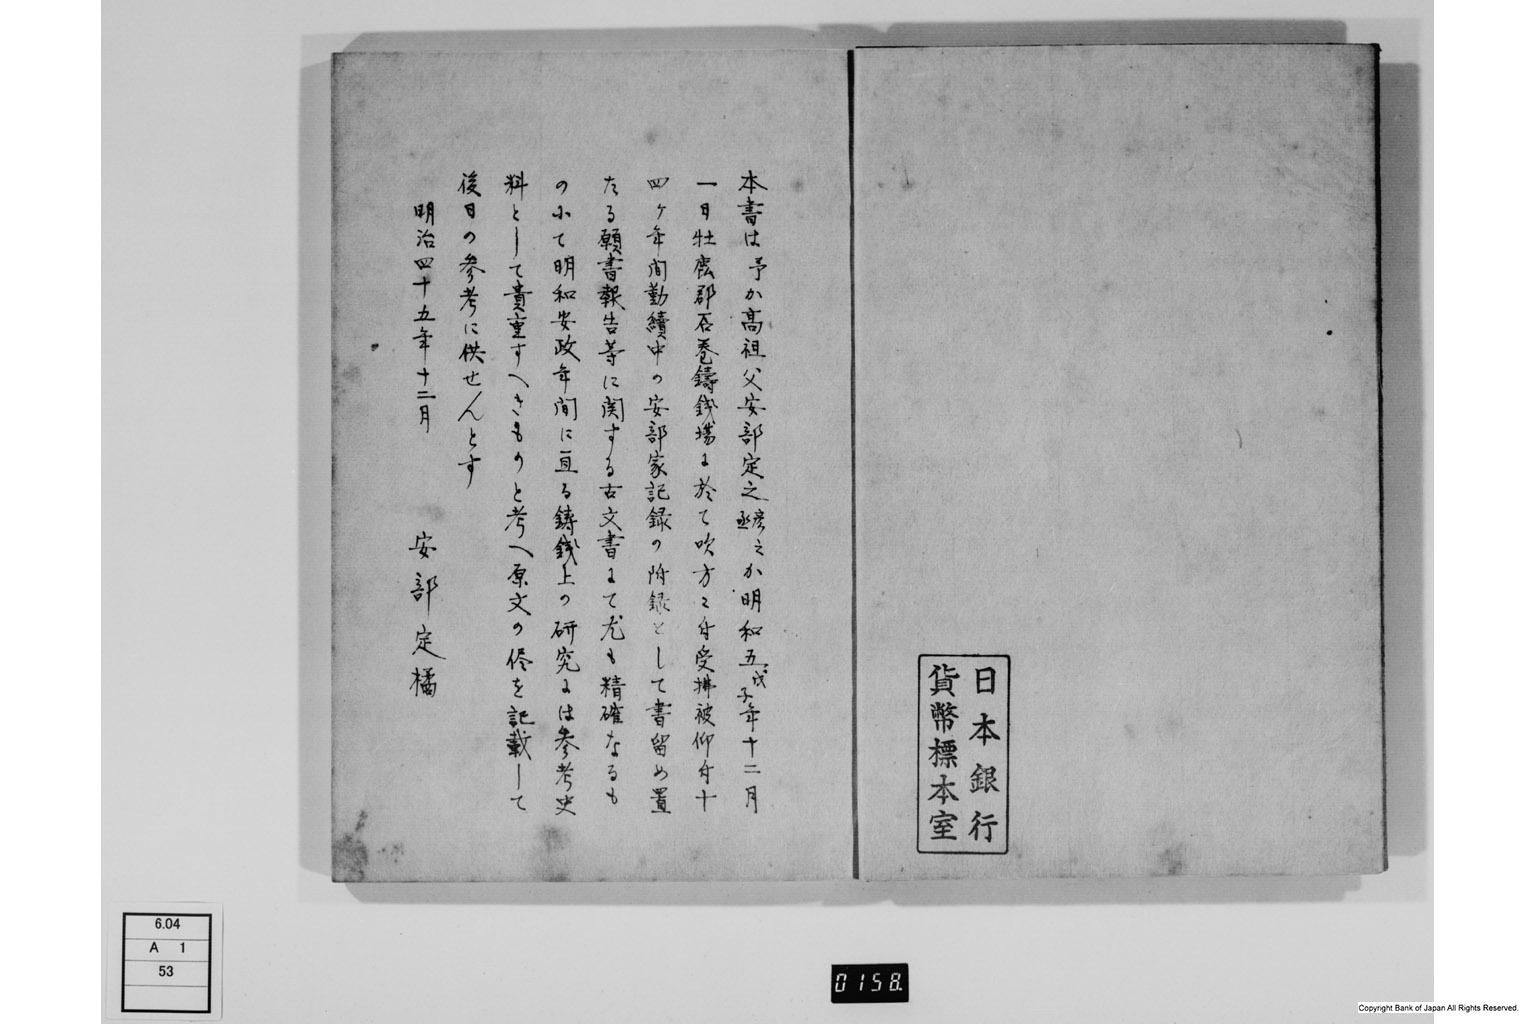 日本銀行
貨幣標本室
本書は予か高祖父安部定之丞彦之か明和五戊子年十二月
一日牡鹿郡石巻鋳銭場に於て吹方に付受拂被仰付十
四ヶ年間勤續中の安部家記録の附録として書留め置
たる願書報告等に関する古文書にて尤も精確なるも
のにて明和安政年間に亘る鋳銭上の研究には参考史
料として貴重すへきものと考へ原文の侭を記載して
後日の参考に供せんとす
明治四十五年十二月
安部定橘
6.04
A 1
53
0158.
Copyright Bank of Japan All Rights Reserved.